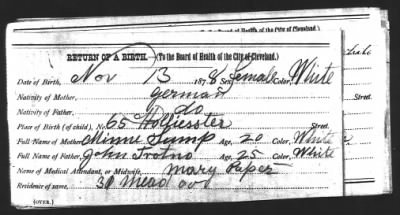 of the Board of Health of the City of Cleveland.)
RETURN OF A BIRTH.—(To the Board of Health of the City of Cleveland.)
Date of Birth, Nov 13 1878 Sex, female Color, White
Nativity of Mother, german Street.
Nativity of Father, do
Place of Birth (of child), No. 65 Street.
Full Name of Mother, Minnie Age, 20 Color, White
Full Name of Father, John Age, 25 Color, White
Name of Medical Attendant, or Midwife, Mary Paper
Residence of same, 30 Mead ave
(OVER.)